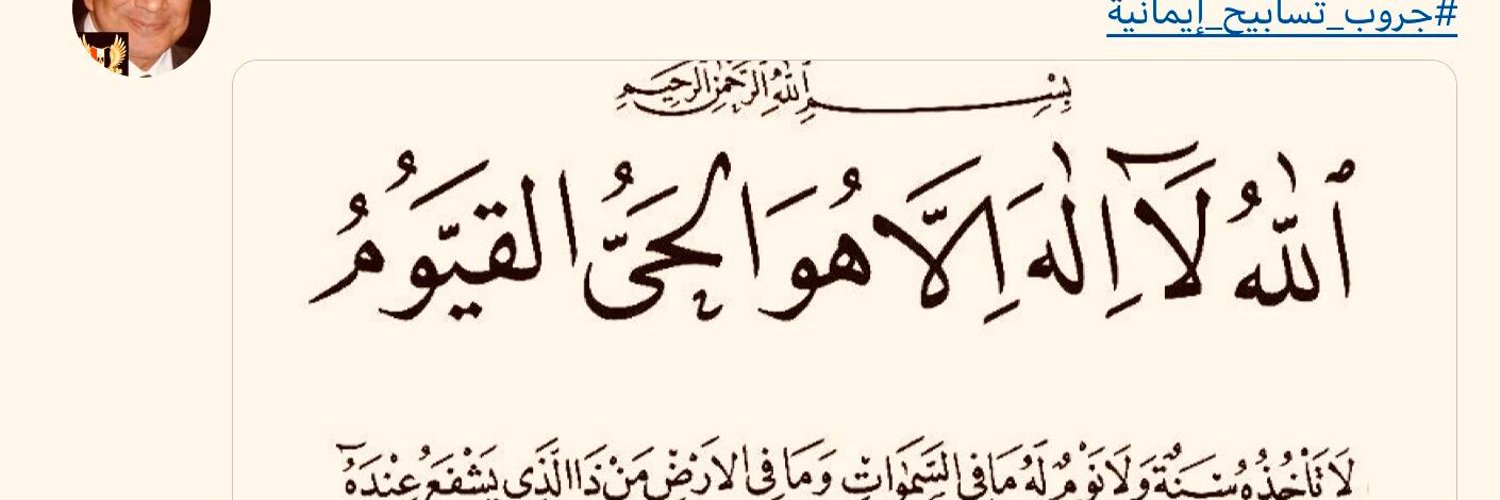 #جروب_تسابيح_إيمانية
بِسْمِ اللهِ الرَّحْمٰنِ الرَّحِيمِ
ٱللّٰهُ لَآ اِلٰهَ اِلَّا هُوَ الْحَيُّ الْقَيُّومُ
لَا تَأْخُذُهُ سِنَةٌ وَلَا نَوْمٌ لَهُ مَا فِي السَّمٰوَاتِ وَمَا فِي الْاَرْضِ مَنْ ذَا الَّذِي يَشْفَعُ عِنْدَهُ